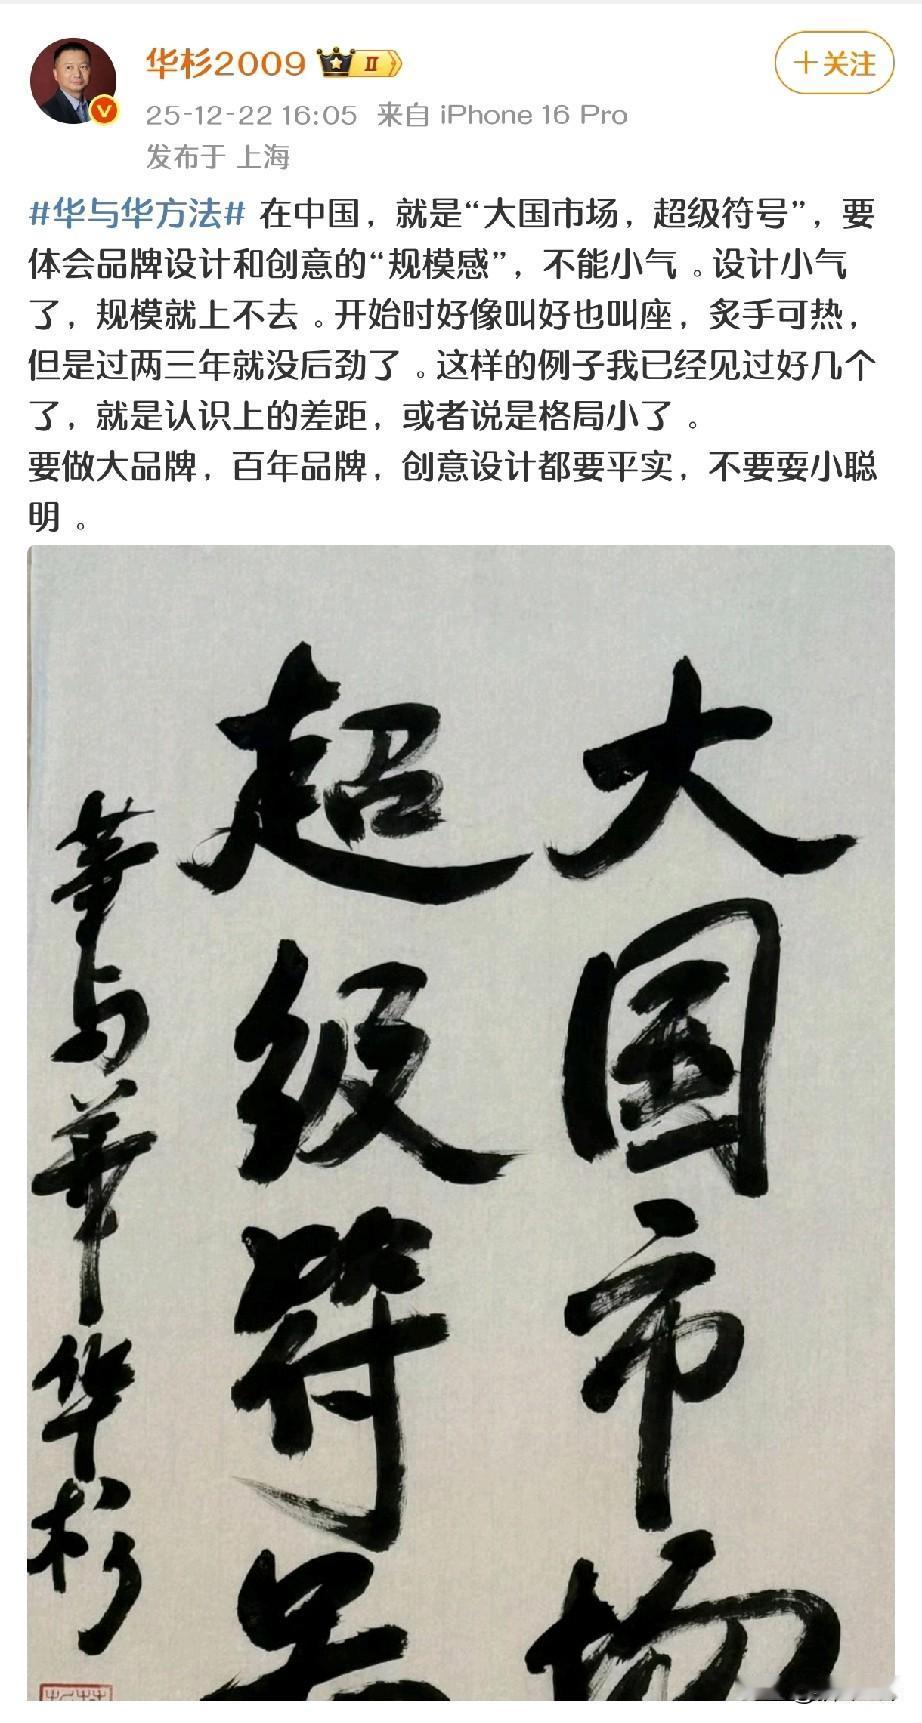 华杉2009 II
+关注
25-12-22 16:05 来自 iPhone 16 Pro
发布于 上海
#华与华方法# 在中国，就是“大国市场，超级符号”，要
体会品牌设计和创意的“规模感”，不能小气。设计小气
了，规模就上不去。开始时好像叫好也叫座，炙手可热，
但是过两三年就没后劲了。这样的例子我已经见过好几个
了，就是认识上的差距，或者说是格局小了。
要做大品牌，百年品牌，创意设计都要平实，不要耍小聪
明。
大国市场
超级符号
華与華华杉